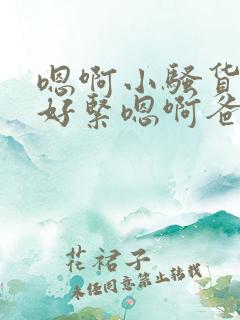 嗯啊小骚货
好紧嗯啊爸
花裙子
未经同意禁止转载